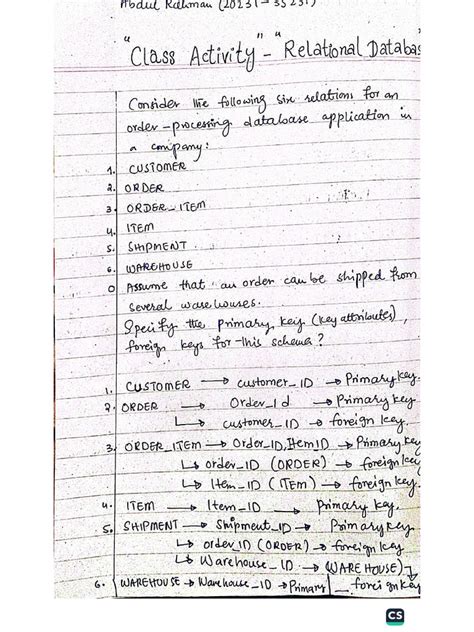 Abdul Rahman (20231-35231)
"Class Activity" - "Relational Databas
Consider the following six relations for an
order-processing database application in
a company:
1. CUSTOMER
2. ORDER
3. ORDER_ITEM
4. ITEM
5. SHIPMENT
6. WAREHOUSE
O Assume that an order can be shipped from
several warehouses.
Specify the primary key (key attributes),
foreign keys for this schema?
1. CUSTOMER → customer_ID → Primary key.
2. ORDER → Order_Id → Primary key.
↳ customer_ID → foreign key.
3. ORDER_ITEM → Order_ID, ItemID → Primary key
↳ order_ID (ORDER) → foreign key
↳ Item_ID (ITEM) → foreign key.
4. ITEM → Item_ID → Primary key.
5. SHIPMENT → Shipment_ID → Primary key.
↳ order_ID (ORDER) → foreign key
↳ Warehouse_ID → (WAREHOUSE) →
6. WAREHOUSE → Warehouse_ID → Primary foreign key
CS